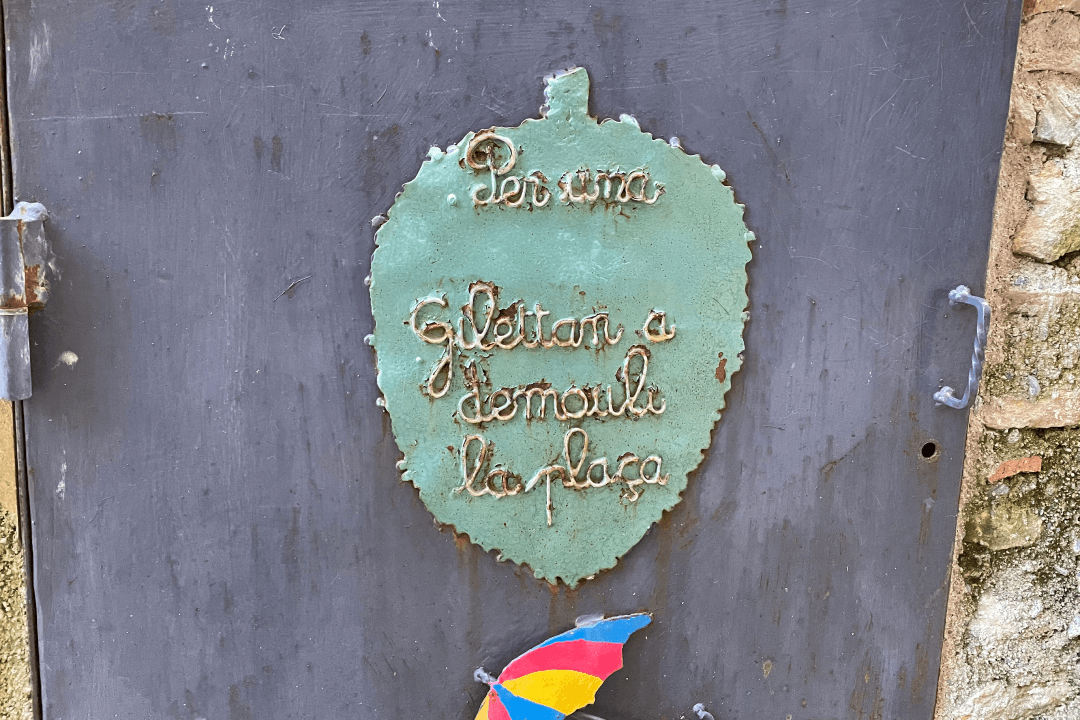 Per una
Gilettan a
demouli
la plaça